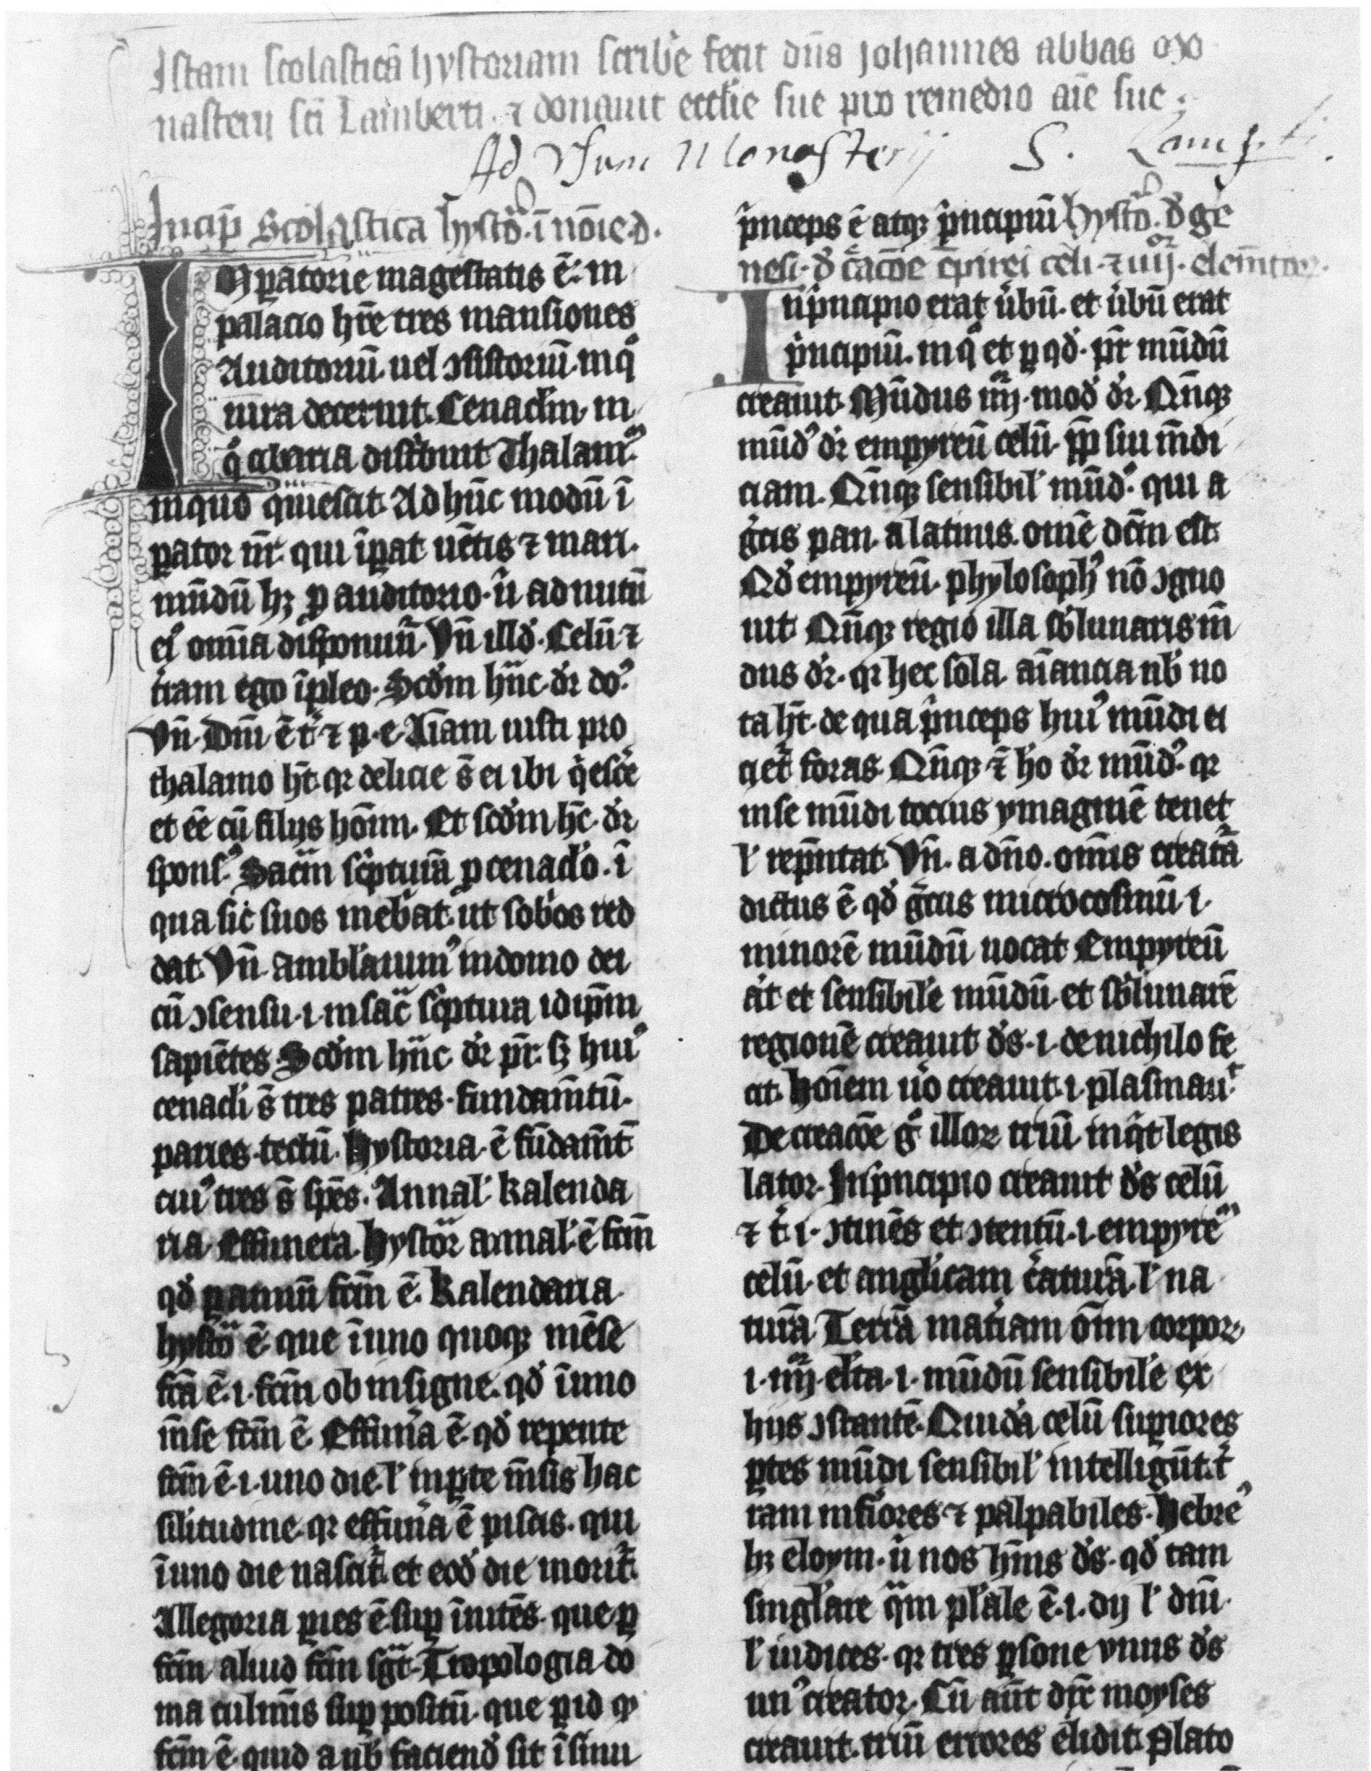 Istam scolasticā hystoriam scrib'e fecit dn̄s Johannes abbas mo
nasterij sc̄i Lamberti · ⁊ donauit eccl'ie sue pro remedio aīe sue ·
Ad Vsum Monasterij S. Lamperti.
Incip̄ Scolastica hysto · ī nōīe d̄.
IMꝑatorie magestatis ē · in
palacio hr̄e tres mansiones
Auditoriū uel ↄsistoriū · in qͦ
iura decernit · Cenacl'm in
qͦ cibaria distͥbuit Thalamꝰ
in quo quiescit · Ad hūc modū ī
ꝑator nr̄ · qui īꝑat uētis ⁊ mari ·
mūdū hꝫ ꝓ auditorio · ū ad nutū
eiꝰ omīa disponunt̄ · Vn̄ illd̄ · Celū ⁊
tͥam ego īpleo · Scd̄m hūc · dr̄ do͛
Vn̄ · Dn̄i ē t͛ ⁊ p · e · Aīam iusti pro
thalamo ht̄ · qr delicie s̄ ei ibi qͥesc͛e
et ēē cū filijs hōīm · Et scd̄m hc̄ · dr̄
spons͛ · Sacͣm scͥpturā ꝓ cenac'lo · ī
qua sic suos īneb͛at · ut sobͥos red
dat · Vn̄ · ambl'auimꝰ in domo dei
cū ↄsensu · i · in sacͣ scͥptura id ip̄m
sapiētes · Scd̄m hūc dr̄ pr̄ · fꝫ huiꝰ
cenac'li s̄ tres partes · fundam̄tū ·
paries · tectū · Hystoria · ē fūdam̄t̄
cuiꝰ tres s̄ sp̄es · Annal' kalenda
ria · Effimera · Hystor̄ annal' ē fcm̄
qd̄ ꝑ annū fcm̄ ē · Kalendaria
hysto ē · que ī uno quoqꝫ mēse
fcā ē · i · fcm̄ ob insigne · qd̄ ī uno
m̄se fcm̄ ē · Effim͛a ē · qd̄ repente
fcm̄ ē · i · uno die l' in ꝑte m̄sis hac
silitudine · qr effim͛a ē piscis · qui
ī uno die nascit̄ · et eod̄ die morit̄ ·
Allegoria ꝑies ē suꝑ īnitēs · que ꝑ
fcm̄ aliud fcm̄ sgͣt · Tropologia do
ma culmīs suꝑpositū · que ꝑ id qͩ
fcm̄ ē · quid a nob̄ faciend̄ sit īsinu
pͥnceps ē atqꝫ pͥncipiū Hysto · d̄ ge
nesi · d̄ cͣacōe ēpirei celi · ⁊ iiijͦʳ · elem̄toꝝ ·
In pͥncipio erat u͛bū · et u͛bū erat
pͥncipiū · in qͦ et ꝑ qd̄ · pr̄ mūdū
creauit · Mūdus iiijͦʳ · mod̄ dr̄ · Qn̄qꝫ
mūdꝰ dr̄ empyreū celū · ꝓp̄ sui mūdi
ciam · Qn̄qꝫ sensibil' mūdꝰ · qui a
gͥcis pan · a latinis · omē dcm̄ est ·
Qd̄ empyreū · phylosophꝰ nō ↄgno
uit · Qn̄qꝫ regio illa sb̄lunaris mū
dus dr̄ · qr hec sola · aīancia nb̄ no
ta ht̄ · de qua pͥnceps huiꝰ mūdi ei
ciet͛ foras · Qn̄qꝫ ⁊ ho dr̄ mūdꝰ · qr
in se mūdi tocius ymaginē tenet
l' rep̄ntat · Vn̄ · a dn̄o · omīs creat͛a
dictus ē qd̄ gͥcus microcosmū · i ·
minorē mūdū uocat · Empyreū
at͛ et sensibil'e mūdū · et sb̄lunarē
regionē creauit ds̄ · i · de nichilo fe
cit · hoīem uͦo creauit · i · plasmauit
De creacōe gͦ illoꝝ triū · inqͥt legis
lator · In pͥncipio creauit ds̄ celū
⁊ t͛ · i · ↄtinēs et ↄtentū · i · empyreū
celū · et anglicam cͣaturā · l' na
turā · Terrā mat͛iam oīm corpoꝝ
i · iiijͦʳ · el'ta · i · mūdū sensibil'e ex
hijs ↄstantē · Quidā celū suꝑiores
ꝑtes mūdi sensibil' intelligūt · t͛
ram inf͛iores ⁊ palpabiles · Hebreꝰ
hꝫ eloym · ū nos hēmꝰ ds̄ · qd̄ tam
singl'are qͣm pl'ale ē · i · dij l' dn̄i ·
l' iudices · qr tres ꝑsone vnus ds̄
unꝰ creator · Cū aūt dix̄ moyses
creauit · triū errores elidit · Plato